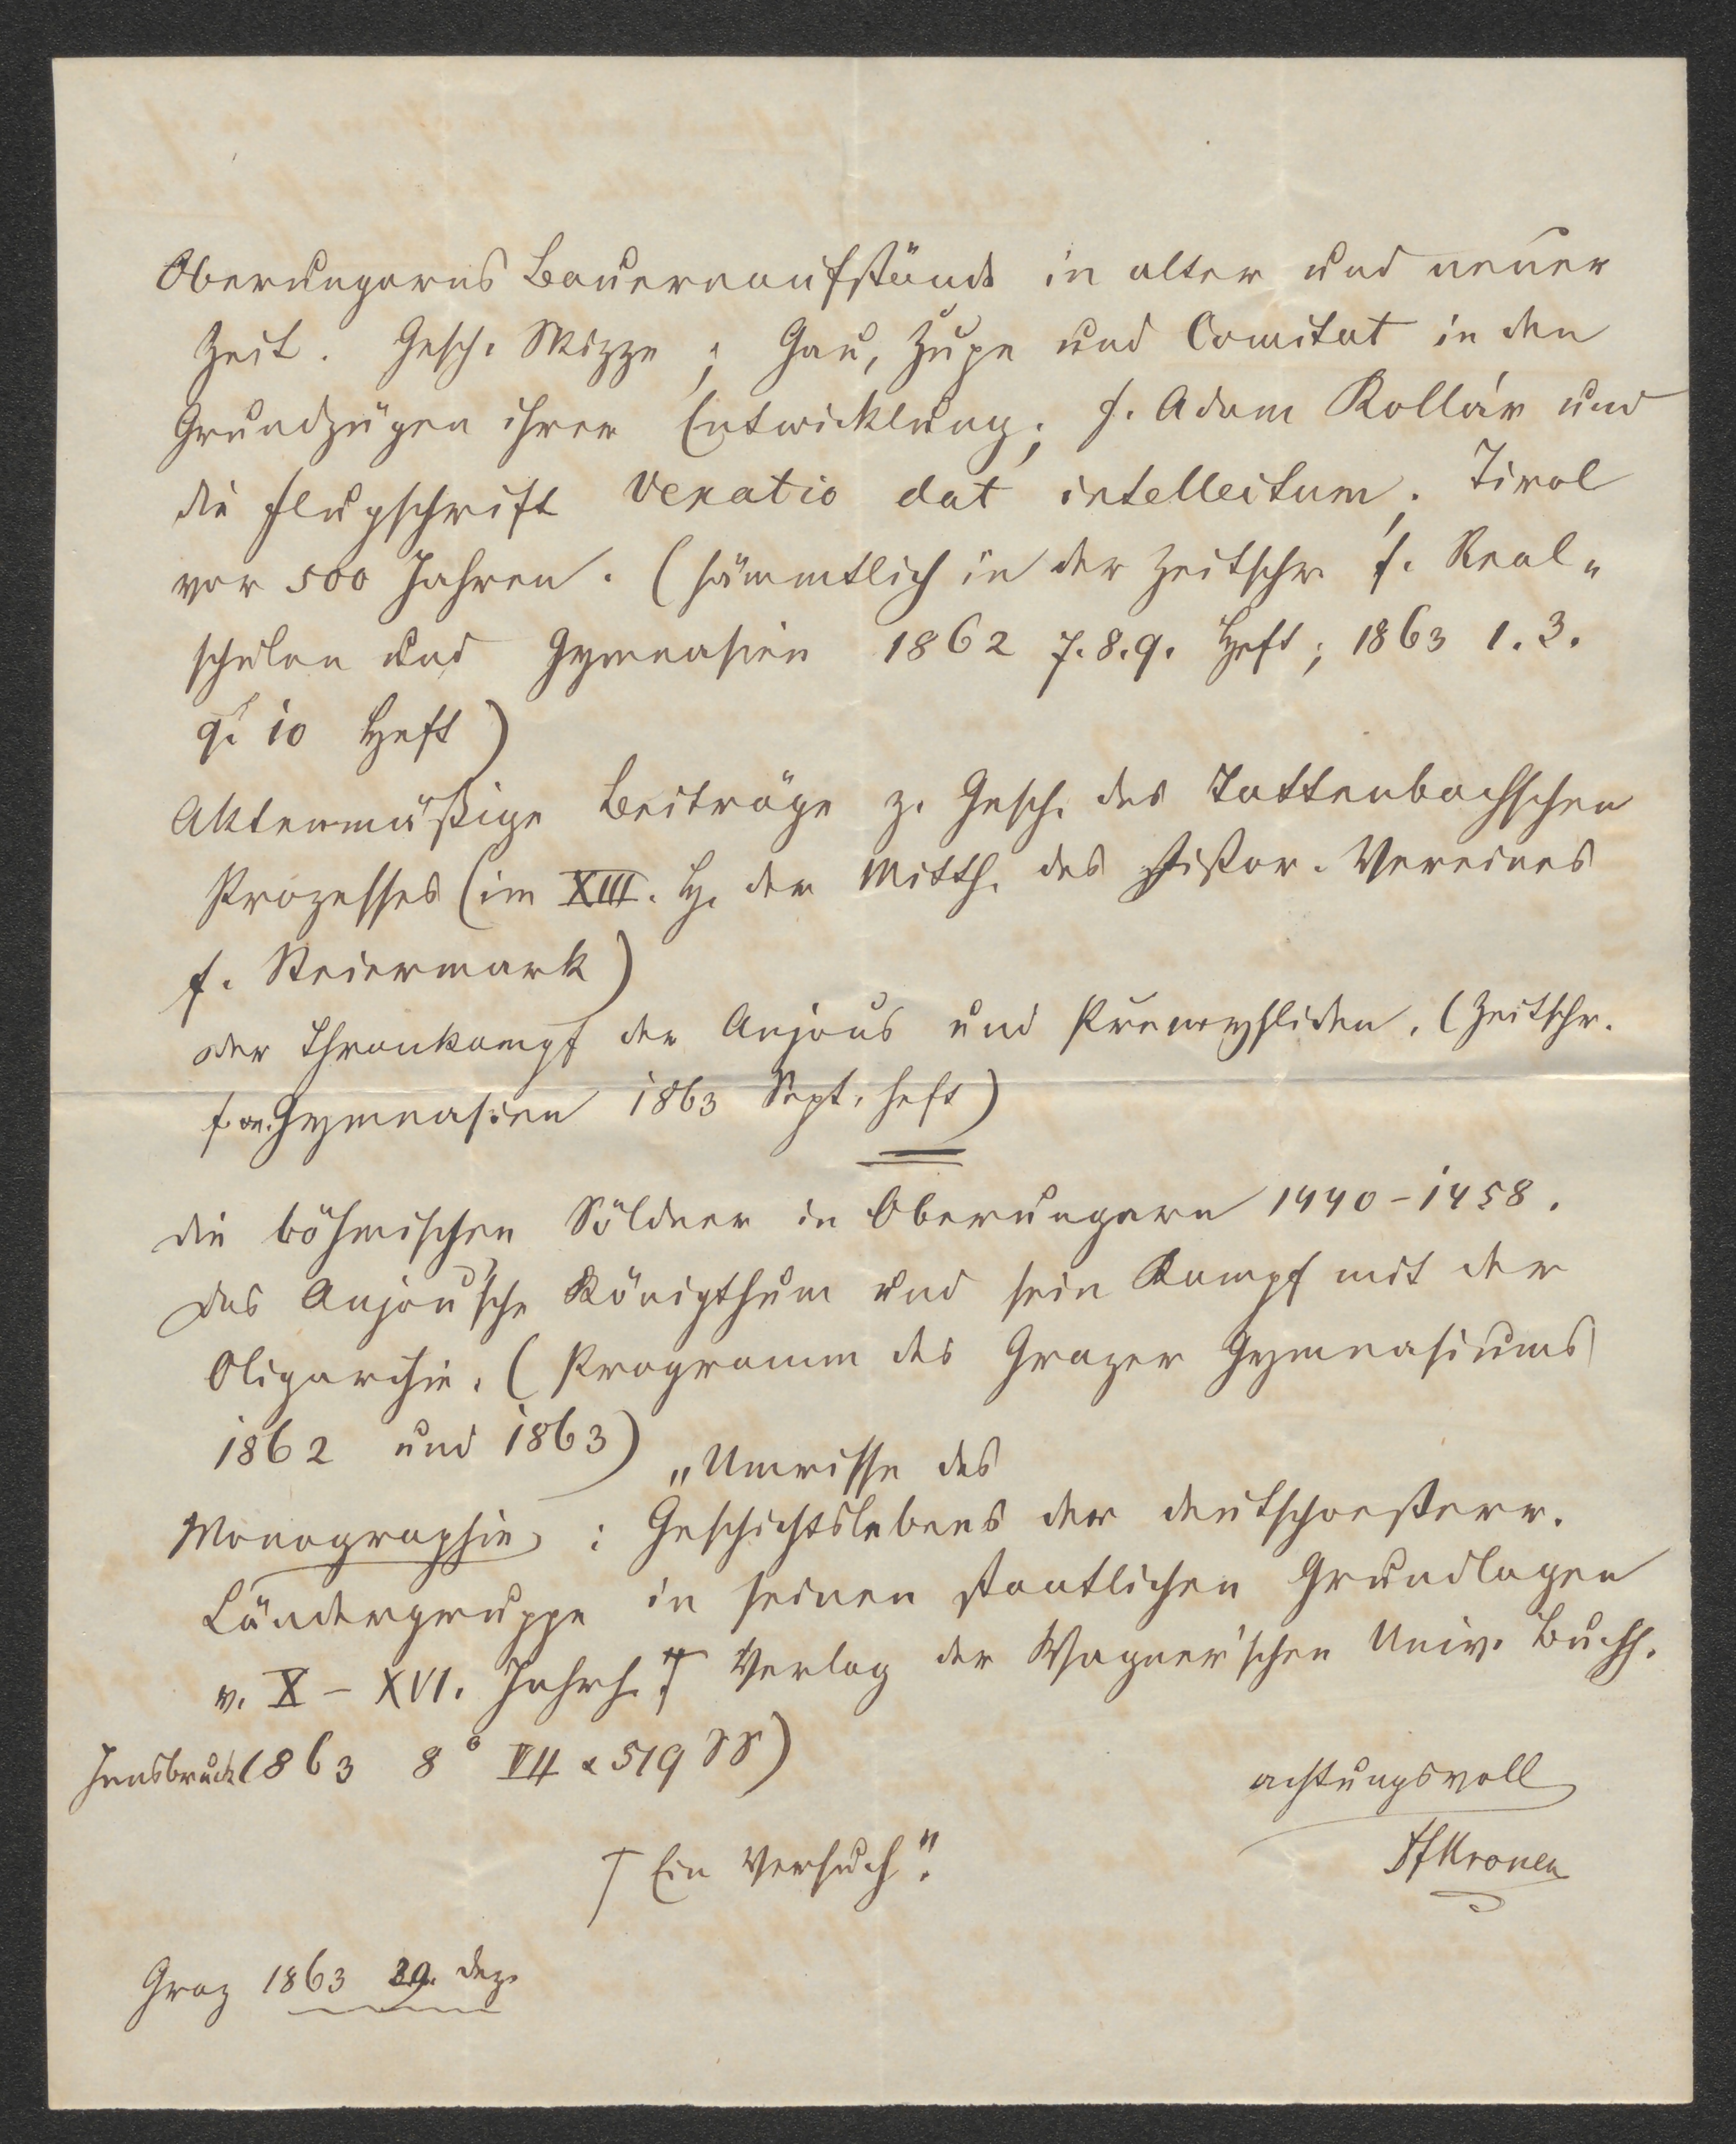 Oberungarns Bauernaufstände in alter und neuer
Zeit. Gesch. Skizze; Gau, Zupe und Comitat in den
Grundzügen ihrer Entwicklung; F. Adam Kollár und
die Flugschrift Vexatio dat intellectum; Tirol
vor 500 Jahren. (sämmtlich in der Zeitschr. f. Real-
schulen und Gymnasien 1862 7. 8. 9. Heft; 1863 1. 3.
9. 10 Heft)
Aktenmäßige Beiträge z. Gesch. des Tattenbachschen
Prozesses (im XIII. H. der Mitth. des histor. Vereines
f. Steiermark)
der Thronkampf der Anjous und Przemysliden. (Zeitschr.
f. Gymnasien 1863 Sept. Heft)
die böhmischen Söldner in Oberungarn 1440–1458.
das Anjou'sche Königthum und sein Kampf mit der
Oligarchie. (Programm des Grazer Gymnasiums
1862 und 1863)
„Umrisse des
Monographie: Geschichtslebens der deutschoesterr.
Ländergruppe in seinen staatlichen Grundlagen
v. X – XVI. Jahrh. † Verlag der Wagner'schen Univ. Buchh.
Innsbruck 1863 8° VII & 519 SS)
achtungsvoll
† Ein Versuch".
FKrones
Graz 1863 29. Dez.